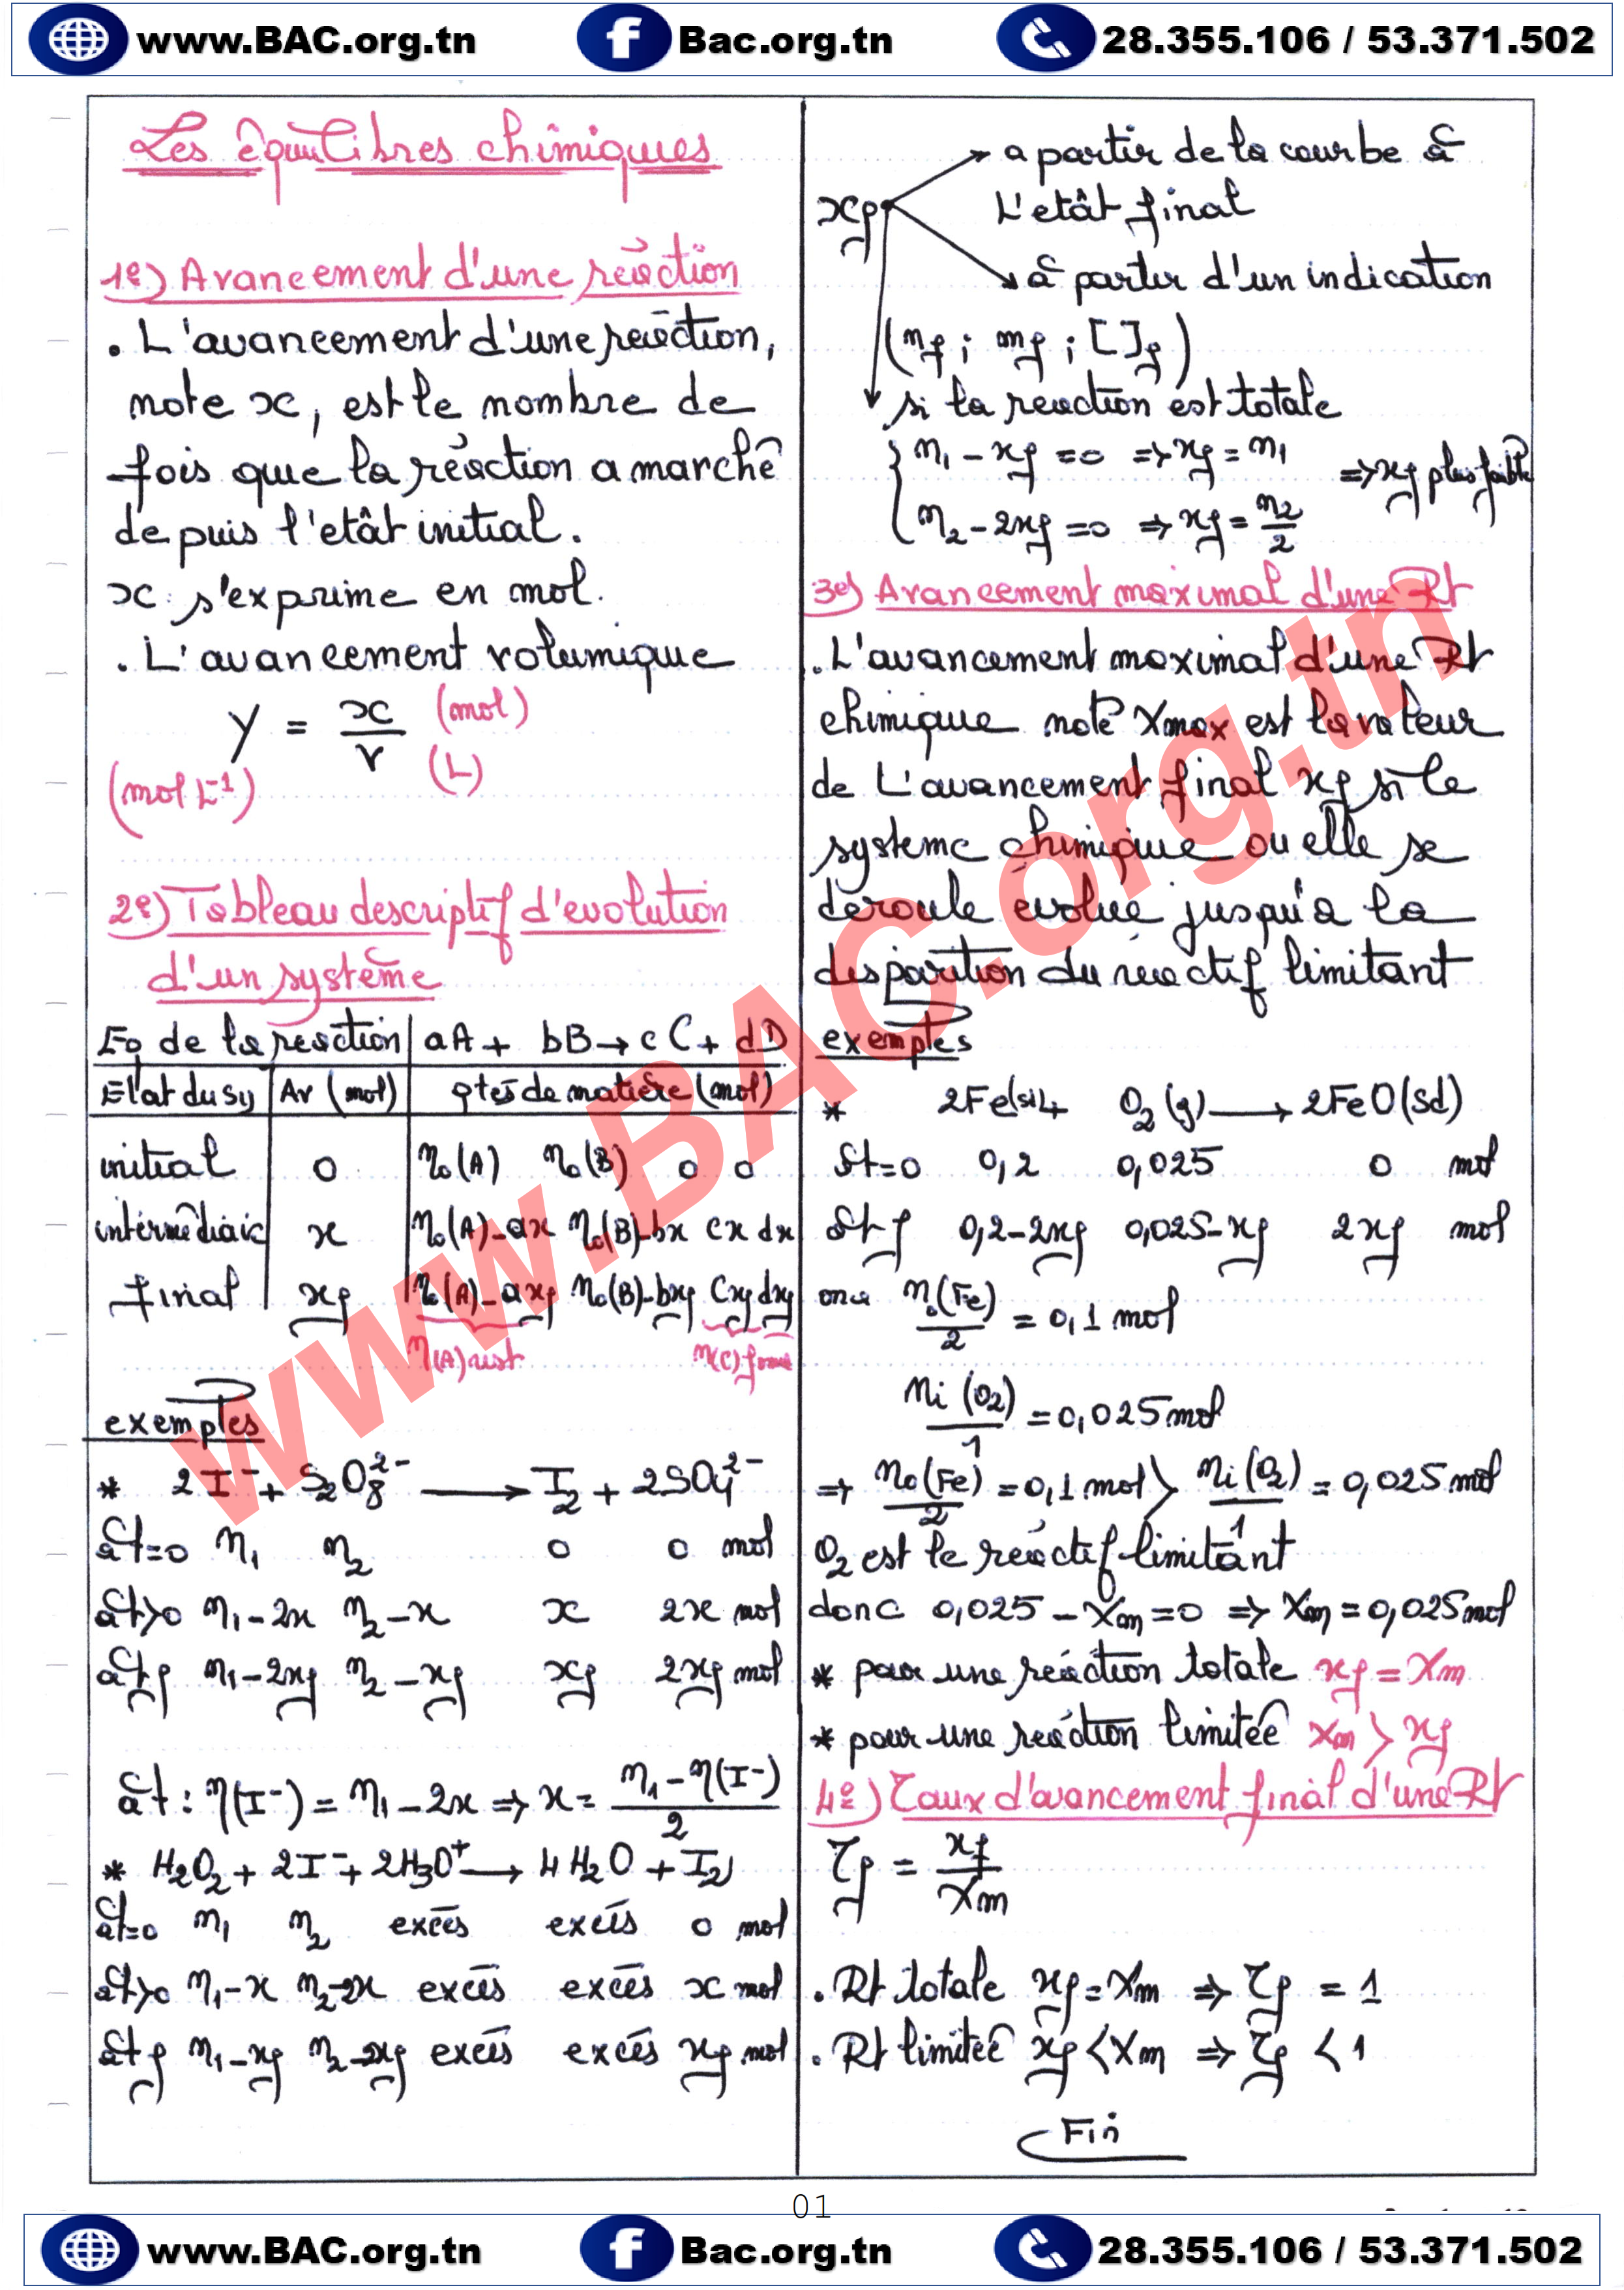 www.BAC.org.tn
Bac.org.tn
28.355.106 / 53.371.502
Les équilibres chimiques
1º) Avancement d'une réaction
. L'avancement d'une réaction,
note x, est le nombre de
fois que la réaction a marché
depuis l'etât initial.
x s'exprime en mol.
. L'avancement volumique
y = x/v (mol) (L)
(mol L⁻¹)
2º) Tableau descriptif d'evolution
d'un système
Eq de la reaction | aA + bB → cC + dD
Etat du sy | Av (mol) | qtés de matière (mol)
initial | 0 | n₀(A) n₀(B) 0 0
intermédiaic | x | n₀(A)-ax n₀(B)-bx cx dx
final | xf | n₀(A)-axf n₀(B)-bxf cxf dxf
n(A) rest n(C) formé
exemples
* 2I⁻ + S₂O₈²⁻ → I₂ + 2SO₄²⁻
à t=0 n₁ n₂ 0 0 mol
à t>0 n₁-2x n₂-x x 2x mol
à tf n₁-2xf n₂-xf xf 2xf mol
à t : n(I⁻) = n₁-2x ⇒ x = (n₁-n(I⁻))/2
* H₂O₂ + 2I⁻ + 2H₃O⁺ → 4H₂O + I₂
à t=0 n₁ n₂ excés excés 0 mol
à t>0 n₁-x n₂-2x excés excés x mol
à tf n₁-xf n₂-2xf excés excés xf mol
xf
a partir de la courbe à
L'etât final
à partir d'un indication
(nf ; mf ; [ ]f)
si la reaction est totale
n₁ - xf = 0 ⇒ xf = n₁
⇒ xf plus faible
n₂ - 2xf = 0 ⇒ xf = n₂/2
3º) Avancement maximal d'une Rt
. L'avancement maximal d'une Rt
chimique noté Xmax est la valeur
de L'avancement final xf si le
systeme chimique ou elle se
deroule évolue jusqu'a la
disparition du réactif limitant
exemples
* 2Fe(sd) + O₂(g) → 2FeO(sd)
à t=0 0,2 0,025 0 mol
à tf 0,2-2xf 0,025-xf 2xf mol
on a n₀(Fe)/2 = 0,1 mol
ni(O₂)/1 = 0,025 mol
⇒ n₀(Fe)/2 = 0,1 mol > ni(O₂)/1 = 0,025 mol
O₂ est le réactif limitant
donc 0,025 - Xm = 0 ⇒ Xm = 0,025 mol
* pour une réaction totale xf = Xm
* pour une reaction limitée Xm > xf
4º) Taux d'avancement final d'une Rt
τf = xf/Xm
. Rt totale xf = Xm ⇒ τf = 1
. Rt limitée xf < Xm ⇒ τf < 1
Fin
www.BAC.org.tn
01
www.BAC.org.tn
Bac.org.tn
28.355.106 / 53.371.502